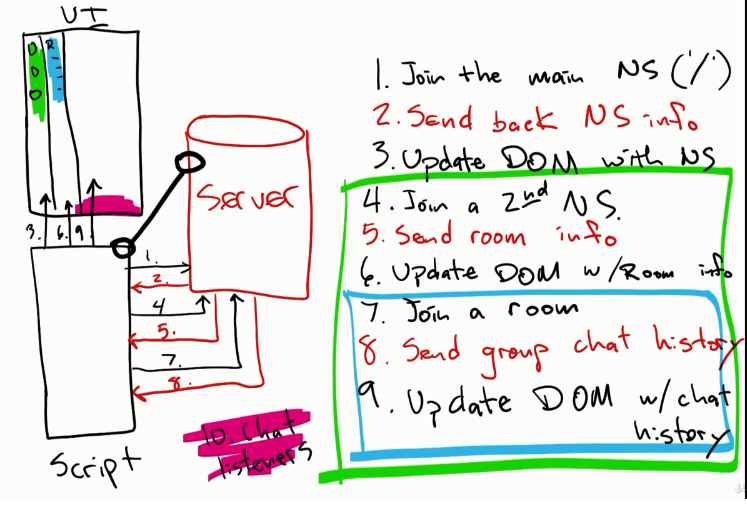 UI
R
3. 6. 9.
Server
1.
2.
4
5.
7.
8.
Script
10. Chat
listeners
1. Join the main NS ('/')
2. Send back NS info
3. Update DOM with NS
4. Join a 2nd NS.
5. Send room info
6. Update DOM w/Room info
7. Join a room
8. Send group chat history
9. Update DOM w/chat
history